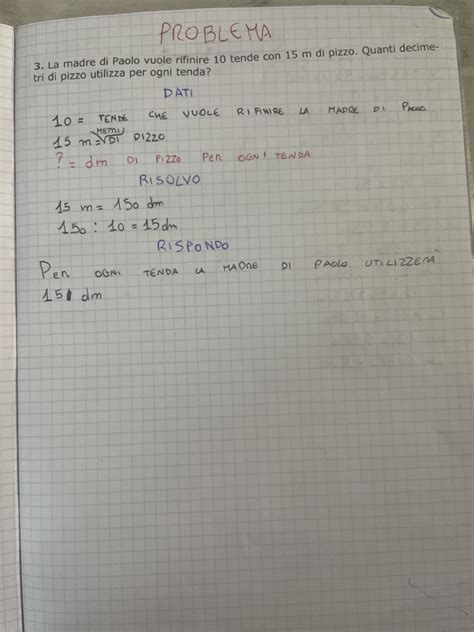 PROBLEMA
3. La madre di Paolo vuole rifinire 10 tende con 15 m di pizzo. Quanti decime-
tri di pizzo utilizza per ogni tenda?
DATI
10 = TENDE CHE VUOLE RIFINIRE LA MADRE DI PAOLO
METRI
15 m = DI PIZZO
? = dm DI PIZZO PER OGNI TENDA
RISOLVO
15 m = 150 dm
150 : 10 = 15 dm
RISPONDO
PER OGNI TENDA LA MADRE DI PAOLO UTILIZZERÀ
15 dm